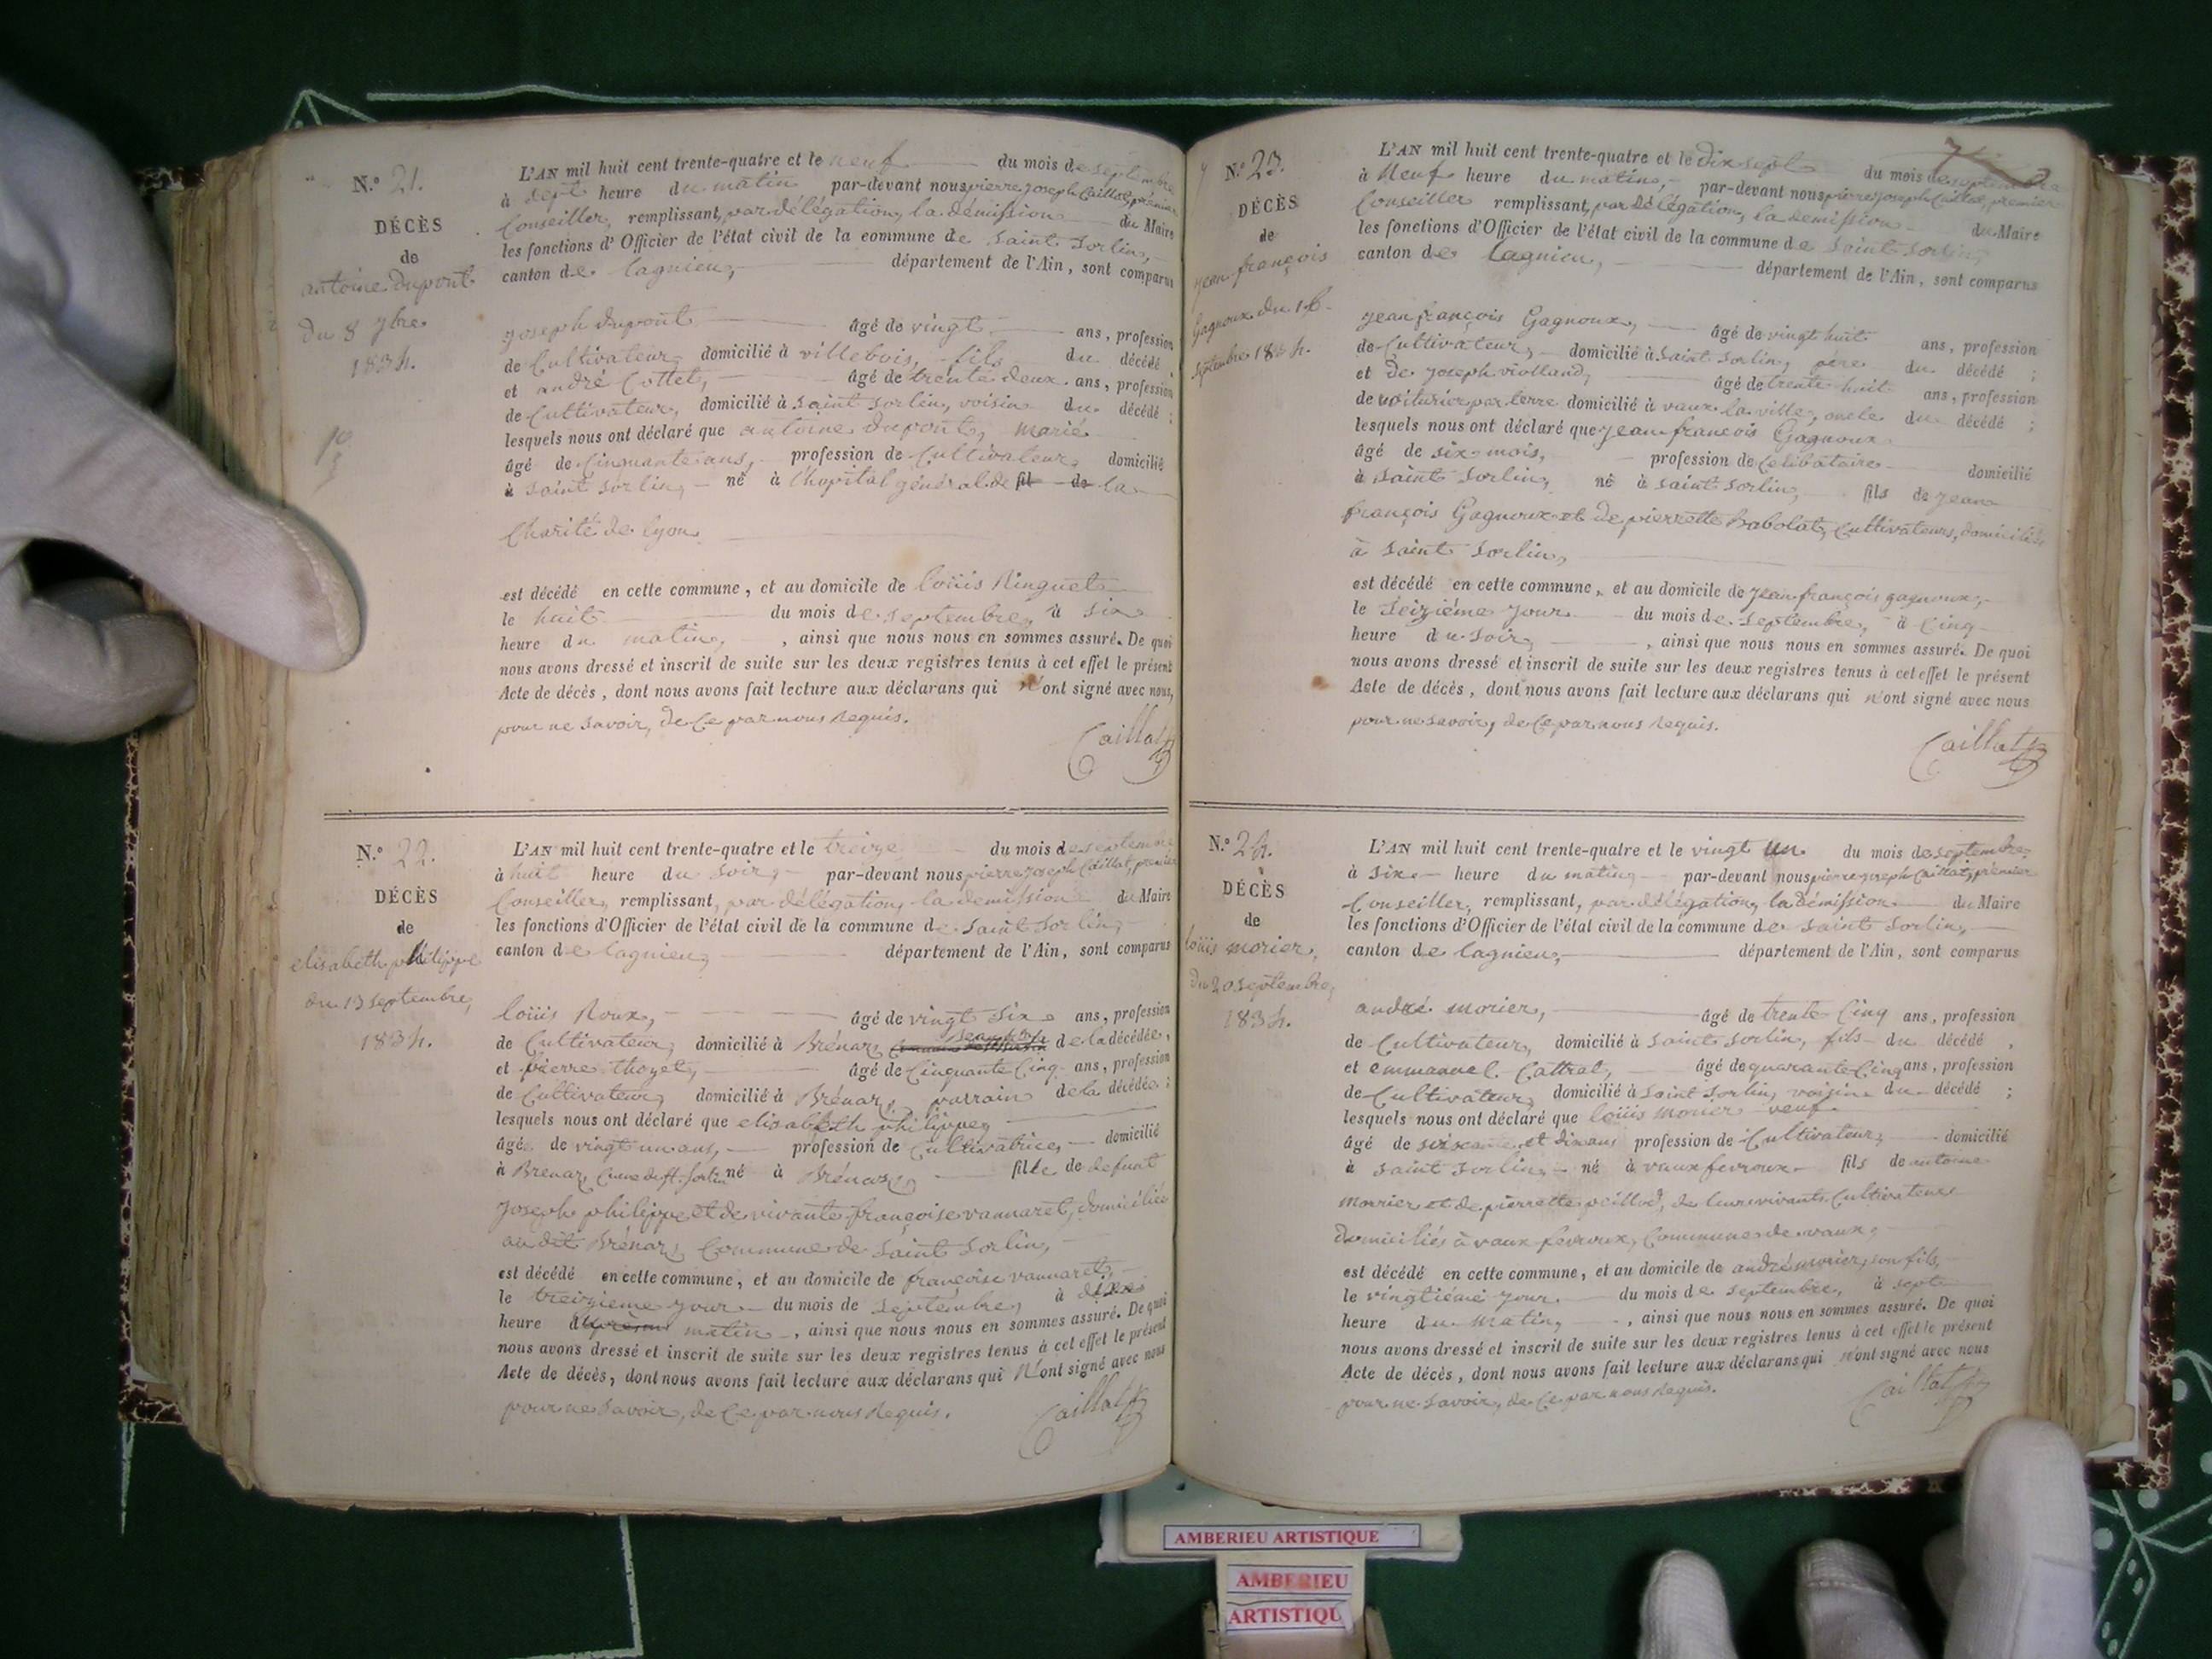 N.º 21.
DÉCÈS
de
antoine Dupont
du 8 7bre
1834.
L'AN mil huit cent trente-quatre et le neuf du mois de septembre
à sept heure du matin par-devant nous pierre joseph Caillat, premier
Conseiller, remplissant, par délégation, la démission du Maire
les fonctions d'Officier de l'état civil de la commune de Saint Sorlin,
canton de Lagnieu, département de l'Ain, sont comparus
joseph Dupont âgé de vingt ans, profession
de Cultivateur, domicilié à villebois, fils du décédé ,
et andré Cottet, âgé de trente deux ans, profession
de Cultivateur, domicilié à Saint Sorlin, voisin du décédé ;
lesquels nous ont déclaré que antoine Dupont, marié
âgé de Cinquante ans, profession de Cultivateur, domicilié
à Saint Sorlin, né à l'hopital général de fil de la
Charité de Lyon
est décédé en cette commune, et au domicile de loüis Ringuet
le huit du mois de septembre, à six
heure du matin, , ainsi que nous nous en sommes assuré. De quoi
nous avons dressé et inscrit de suite sur les deux registres tenus à cet effet le présent
Acte de décès, dont nous avons fait lecture aux déclarans qui n'ont signé avec nous,
pour ne savoir, de Ce par nous Requis.
Caillat
N.º 22.
DÉCÈS
de
elisabeth philippe
du 13 septembre,
1834.
L'AN mil huit cent trente-quatre et le treize du mois de septembre
à huit heure du soir, par-devant nous pierre joseph Caillat, premier
Conseiller, remplissant, par délégation, la demission du Maire
les fonctions d'Officier de l'état civil de la commune de Saint Sorlin,
canton de Lagnieu, département de l'Ain, sont comparus
loüis Roux, âgé de vingt Six ans, profession
de Cultivateur, domicilié à Brénaz, de la décédée ,
et pierre thoyet, âgé de Cinquante Cinq ans, profession
de Cultivateur, domicilié à Brénaz, parrain de la décédée ;
lesquels nous ont déclaré que elisabeth philippe,
âgée de vingt un ans, profession de Cultivatrice, domicilié
à Brenaz, né à Brénaz, fille de defunt
joseph philippe et de vivante françoise vannaret, domiciliée
au dit Brénaz, Commune de Saint Sorlin,
est décédé en cette commune, et au domicile de françoise vannaret,
le treizieme jour du mois de septembre, à dix
heure du matin , ainsi que nous nous en sommes assuré. De quoi
nous avons dressé et inscrit de suite sur les deux registres tenus à cet effet le présent
Acte de décès, dont nous avons fait lecture aux déclarans qui N'ont signé avec nous
pour ne Savoir, de Ce par nous Requis.
Caillat
N.º 23.
DÉCÈS
de
jean françois
Gagnoux du 16
septembre 1834.
L'AN mil huit cent trente-quatre et le dix sept du mois de septembre
à Neuf heure du matin, par-devant nous pierre joseph Caillat, premier
Conseiller remplissant, par délégation, la demission du Maire
les fonctions d'Officier de l'état civil de la commune de Saint Sorlin,
canton de Lagnieu, département de l'Ain, sont comparus
jean françois Gagnoux, âgé de vingt huit ans, profession
de Cultivateur, domicilié à Saint Sorlin, père du décédé ;
et de joseph violland, âgé de trente huit ans, profession
de voiturier par terre domicilié à vaux la ville, oncle du décédé ;
lesquels nous ont déclaré que jean françois Gagnoux
âgé de six mois, profession de Celibataire domicilié
à Saint Sorlin, né à Saint Sorlin, fils de jean
françois Gagnoux et de pierrette Babolat, Cultivateurs, domiciliés
à Saint Sorlin,
est décédé en cette commune, et au domicile de jean françois gagnoux,
le Seizième jour du mois de septembre, à Cinq
heure du Soir, , ainsi que nous nous en sommes assuré. De quoi
nous avons dressé et inscrit de suite sur les deux registres tenus à cet effet le présent
Acte de décès, dont nous avons fait lecture aux déclarans qui n'ont signé avec nous
pour ne savoir, de Ce par nous Requis.
Caillat
N.º 24.
DÉCÈS
de
loüis morier,
du 20 septembre,
1834.
L'AN mil huit cent trente-quatre et le vingt un du mois de septembre
à Six heure du matin par-devant nous pierre joseph Caillat, premier
Conseiller, remplissant, par délégation, la démission du Maire
les fonctions d'Officier de l'état civil de la commune de Saint Sorlin,
canton de Lagnieu, département de l'Ain, sont comparus
andré morier, âgé de trente Cinq ans, profession
de Cultivateur, domicilié à Saint Sorlin, fils du décédé ,
et emmanuel Cattrat, âgé de quarante Cinq ans, profession
de Cultivateur, domicilié à Saint Sorlin, voisin du décédé ;
lesquels nous ont déclaré que loüis Morier veuf
âgé de soixante et dix ans profession de Cultivateur, domicilié
à Saint Sorlin, né à vaux fevroux fils de antoine
morier et de pierrette peillod, de leur vivants Cultivateurs
domiciliés à vaux fevroux, Commune de vaux,
est décédé en cette commune, et au domicile de andré morier, son fils,
le vingtième jour du mois de septembre, à sept
heure du Matin, , ainsi que nous nous en sommes assuré. De quoi
nous avons dressé et inscrit de suite sur les deux registres tenus à cet effet le présent
Acte de décès, dont nous avons fait lecture aux déclarans qui n'ont signé avec nous
pour ne Savoir, de Ce par nous Requis.
Caillat
AMBERIEU ARTISTIQUE
AMBERIEU
ARTISTIQU